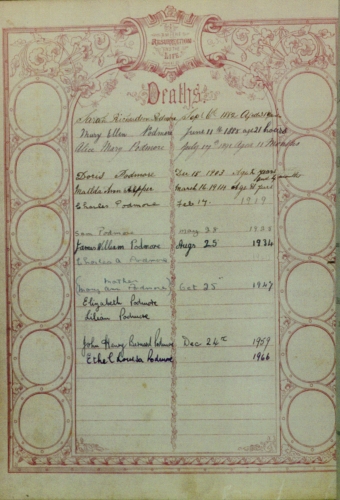 RESURRECTION
LIFE
Deaths
Sarah Podmore Sept 6th 1882 Aged
Mary Ellen Podmore June 11th 1882 aged 21 hours
Alice Mary Podmore July 17th aged 11 Months
Doris Podmore Dec 18 1903 Age 2 years
Matilda Ann March 16 1914 Age years
Charles Podmore Feb 17 1919
Podmore May 28
James William Podmore Aug 25 1934
Charles A Podmore
Mother
Mary Ann Podmore Oct 25 1947
Elizabeth Podmore
Lilian Podmore
John Henry Podmore Dec 24th 1959
Ethel Louisa Podmore 1966